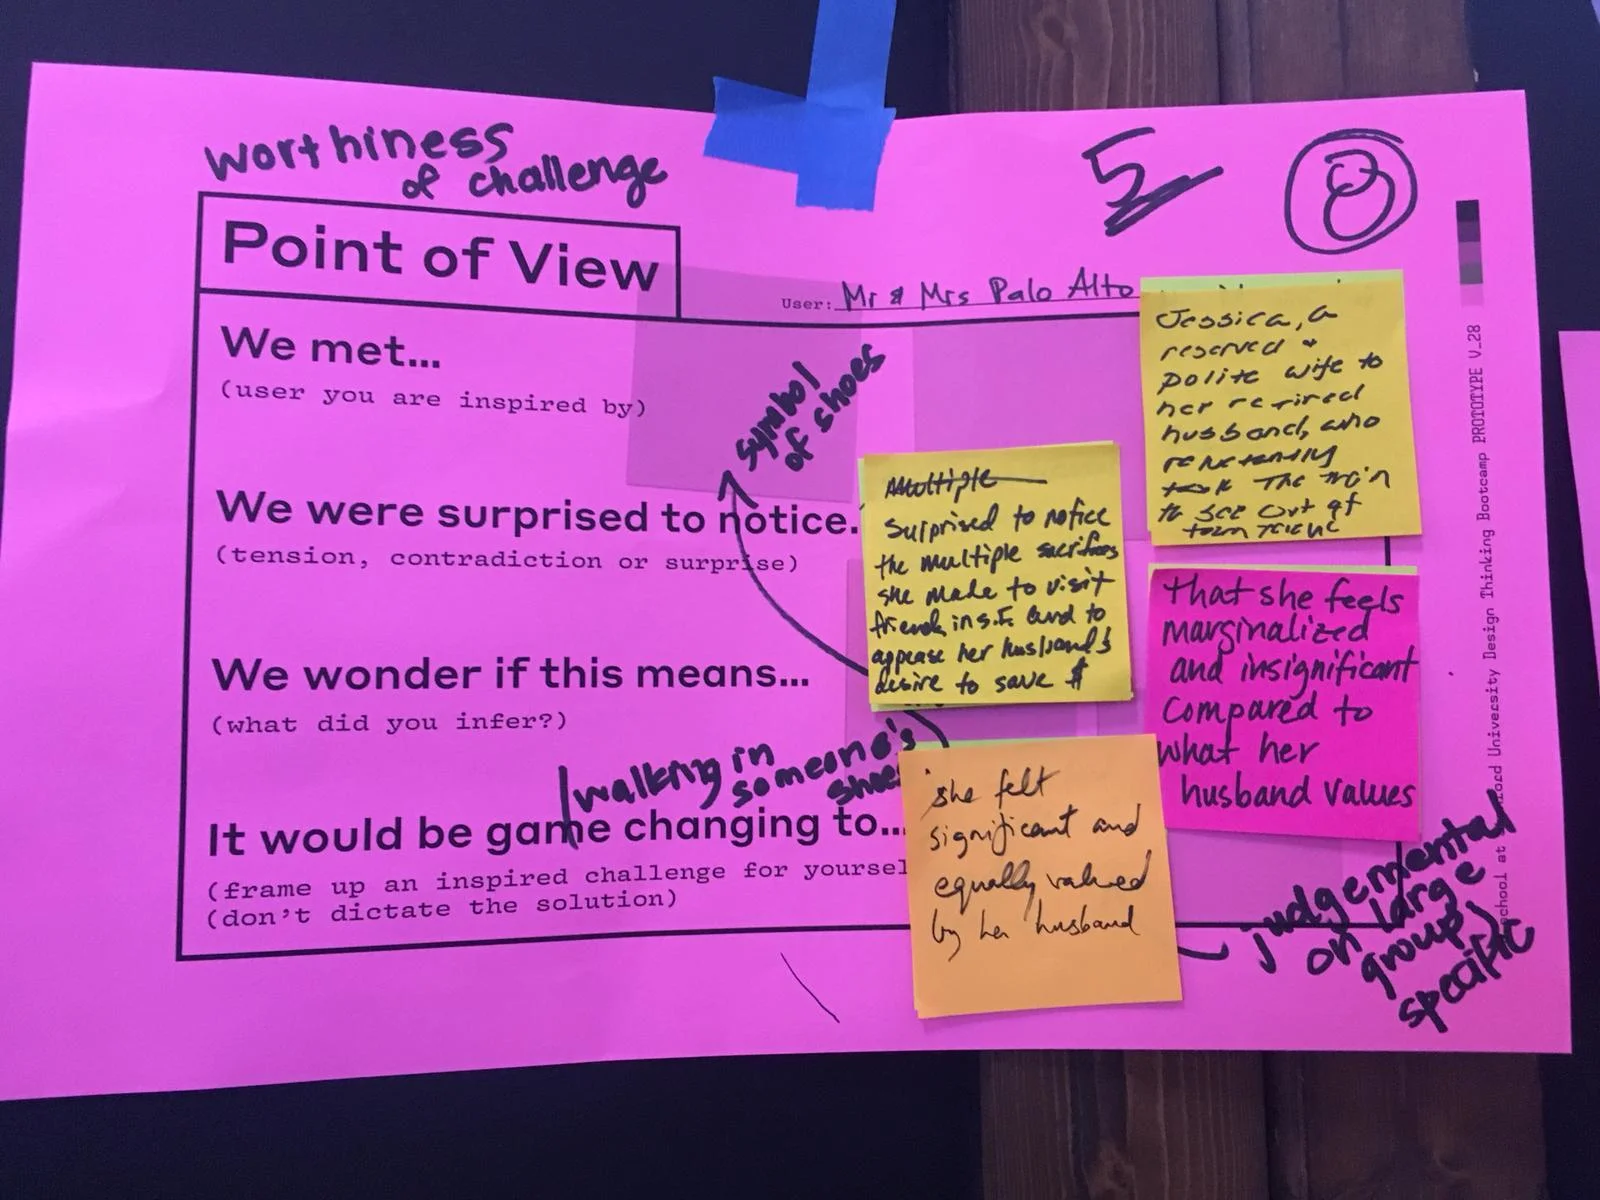 worthiness
of challenge
5
8
Point of View
User: Mr & Mrs Palo Alto
We met...
(user you are inspired by)
Jessica, a
reserved &
polite wife to
her retired
husband, who
reluctantly
took the train
to see out of
town
symbol
of shoes
We were surprised to notice.
(tension, contradiction or surprise)
Multiple
Surprised to notice
the multiple sacrifices
she made to visit
friends in S.F. and to
appease her husband's
desire to save $
We wonder if this means...
(what did you infer?)
that she feels
marginalized
and insignificant
compared to
what her
husband values
walking in
someone's
shoes
It would be game changing to...
(frame up an inspired challenge for yoursel
(don't dictate the solution)
she felt
significant and
equally valued
by her husband
judgemental
on large
group,
specific
school at
ford University Design Thinking Bootcamp PROTOTYPE V_28